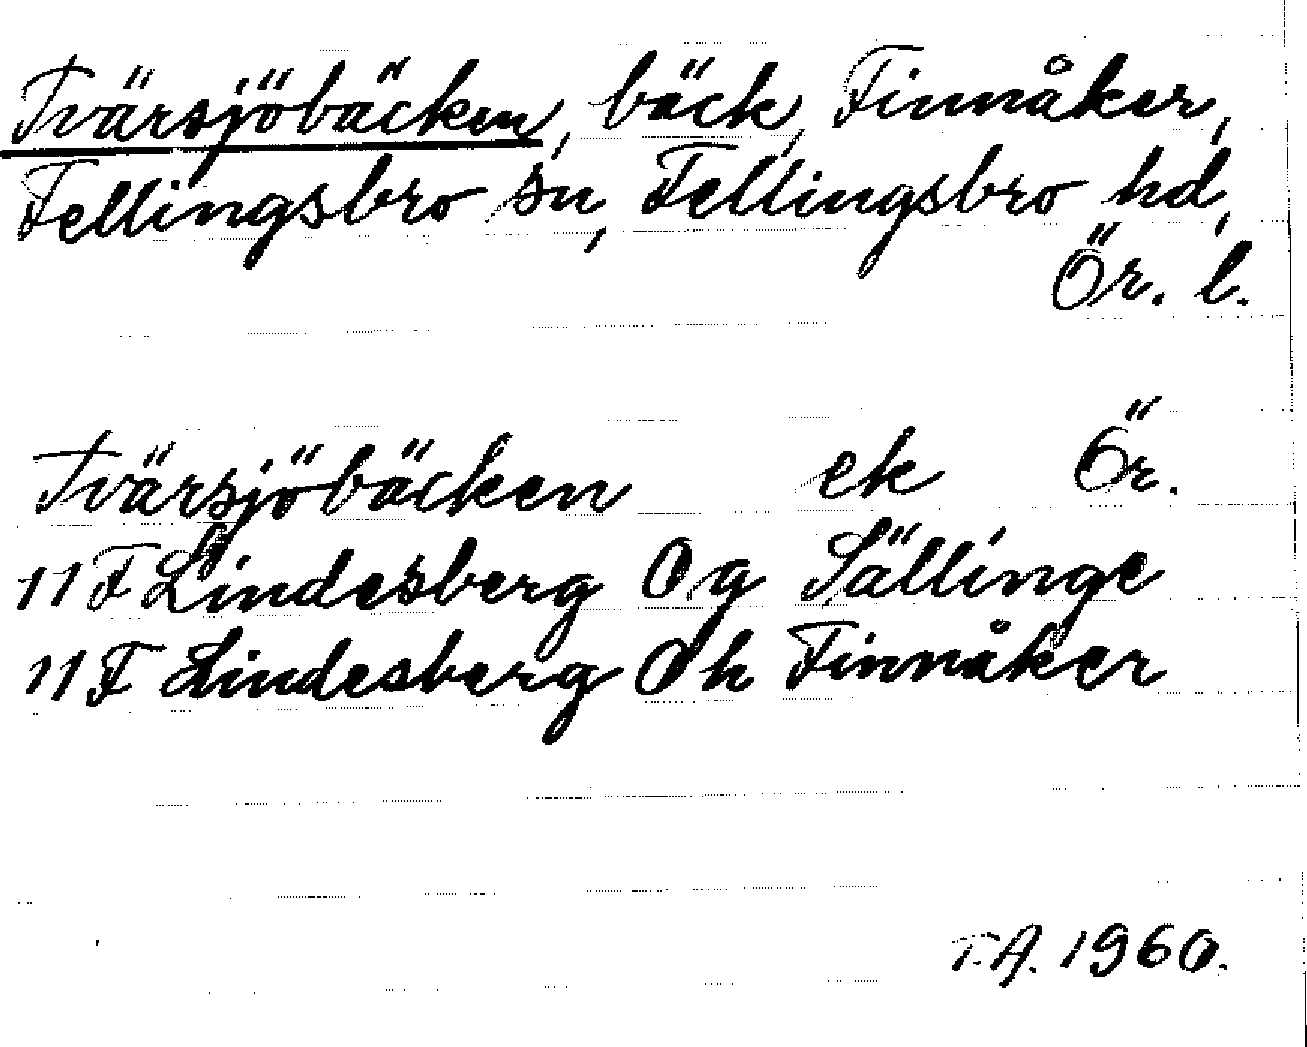 Tvärsjöbäcken, bäck, Finnåker,
Fellingsbro sn, Fellingsbro hd,
Ör. l.
Tvärsjöbäcken ek Ör.
11 F Lindesberg Og Sällinge
11 F Lindesberg Oh Finnåker
T.A. 1960.